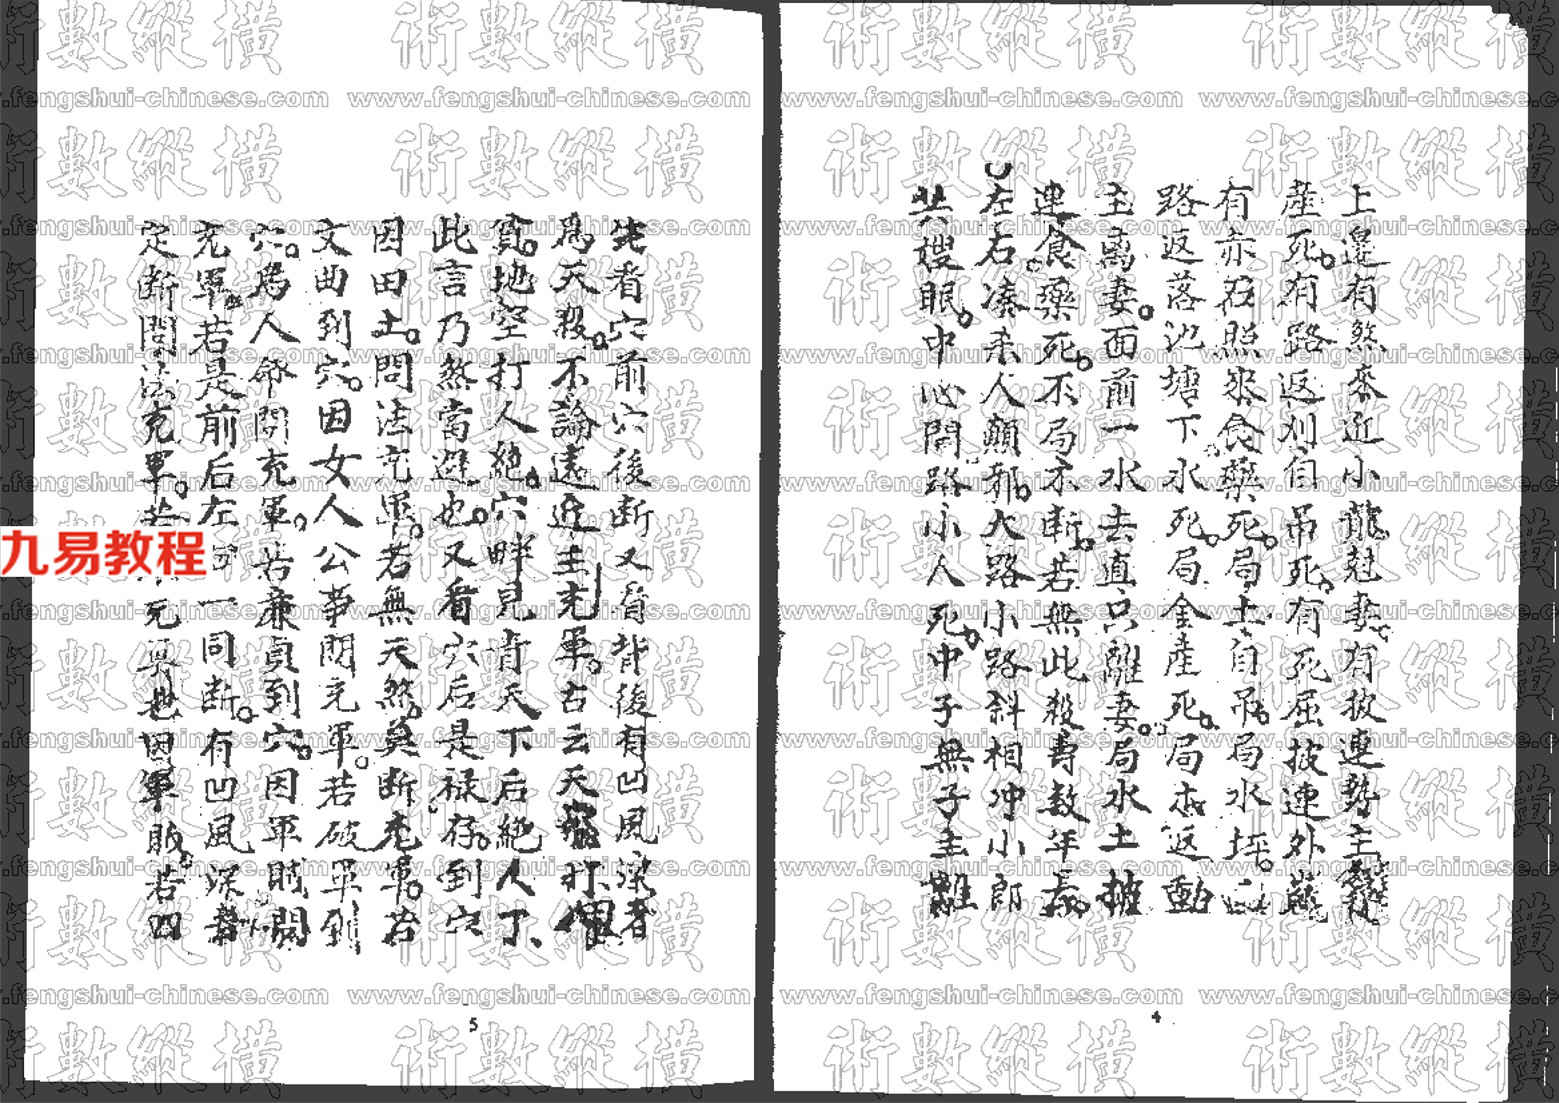 上邊有煞來近小龍尅妻有披連勢主
產死有路返刈自吊死有死屈披連外
有亦石照來食藥死局土自吊局水坪
路返落氿塘下水死局金產死局木返動
主离妻面前一水去直只離妻局水土
連食藥死不局不断若無此殺壽数年長
左右凑來人顛邪大路小路斜相冲小郎
共嫂眼中心問路小人死中子無子主離
4
先看穴前穴後断又看背後有凹風深者
為天殺不論遠近主充軍古云天打
貧地空打人絕穴畔見青天下后絕人丁
此言乃煞當避也又看穴后是禄存到穴
因田土問法充軍若無天煞莫断充軍若
文曲到穴因女人公事問充軍若破軍到
穴為人命問充軍若廉貞到穴因軍賊問
充軍若是前后左一同断有凹風深
定断問法充軍若元因軍敗若四
5
術數縱橫
www.fengshui-chinese.com
九易教程